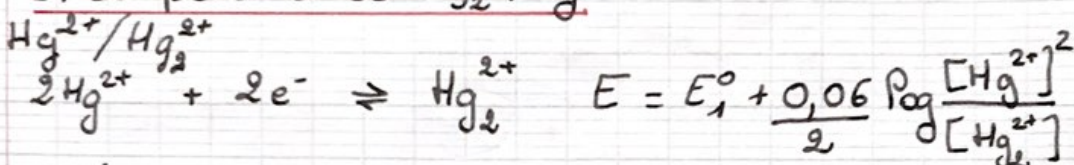 Hg²⁺/Hg₂²⁺
2Hg²⁺ + 2e⁻ ⇌ Hg₂²⁺ E = E₁° + 0,06/2 log [Hg²⁺]²/[Hg₂²⁺]